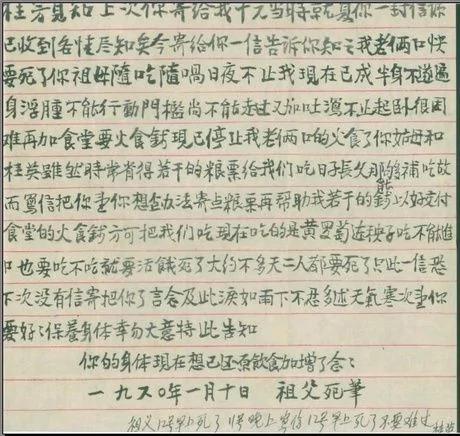 桂芳見知上次你寄給我十元当時就復你一封信你
已收到各情尽知矣今寄給你一信告訴你知之我老俩口快
要死了你祖母隨吃隨喝日夜不止我現在已成半身不遂遍
身浮腫不能行動門檻尚不能走过又加吐瀉不止起卧很困
难再加食堂要火食鈣現已停止我老俩口的火食了你姑母和
桂英雖然時常省得若干的粮票給我们吃日子長久那能夠補吃故
而寫信把你望你想盡办法寄点粮票再帮助我若干的鈣以好交付
食堂的火食鈣方可把我们吃現在吃的是黄罗萄连秧子吃不能進
口也要吃不吃就要活餓死了大約不多天二人都要死了只此一信恐
下次没有信寄把你了言念及此淚如雨下不忍多述天氣寒次望你
要好好保養身体幸勿大意特此告知
你的身体現在想已还原飲食加增了念念
一九六〇年一月十日 祖父死筆
祖父12号早上死了 11号晚上寫信12号早上死了不要难过